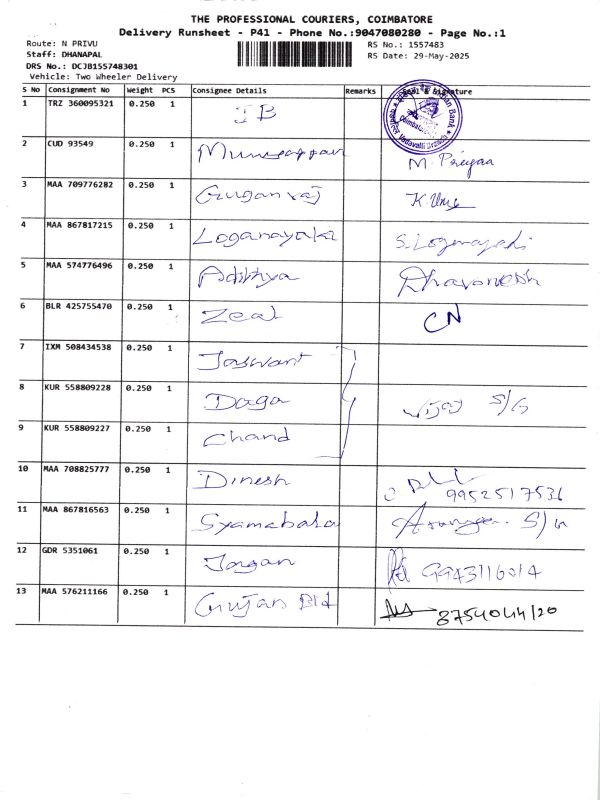 THE PROFESSIONAL COURIERS, COIMBATORE
Delivery Runsheet - P41 - Phone No.:9047080280 - Page No.:1
Route: N PRIVU RS No.: 1557483
Staff: DHANAPAL RS Date: 29-May-2025
DRS No.: DCJB155748301
Vehicle: Two Wheeler Delivery
S No Consignment No Weight PCS Consignee Details Remarks Seal & Signature
1 TRZ 360095321 0.250 1 IB Indian Bank
2 CUD 93549 0.250 1 M. Priyaa
3 MAA 709776282 0.250 1 Guganraj K. Uma
4 MAA 867817215 0.250 1 Loganayaki S. Loganayaki
5 MAA 574776496 0.250 1 Adithya Dharanessh
6 BLR 425755470 0.250 1 Zeal CN
7 IXM 508434538 0.250 1 Jaswant
8 KUR 558809228 0.250 1 Daga Vijay S/G
9 KUR 558809227 0.250 1 Chand
10 MAA 708825777 0.250 1 Dinesh 9952517536
11 MAA 867816563 0.250 1 Syamabala
12 GDR 5351061 0.250 1 Jagan 9943116014
13 MAA 576211166 0.250 1 Gujan Bld 8754044120